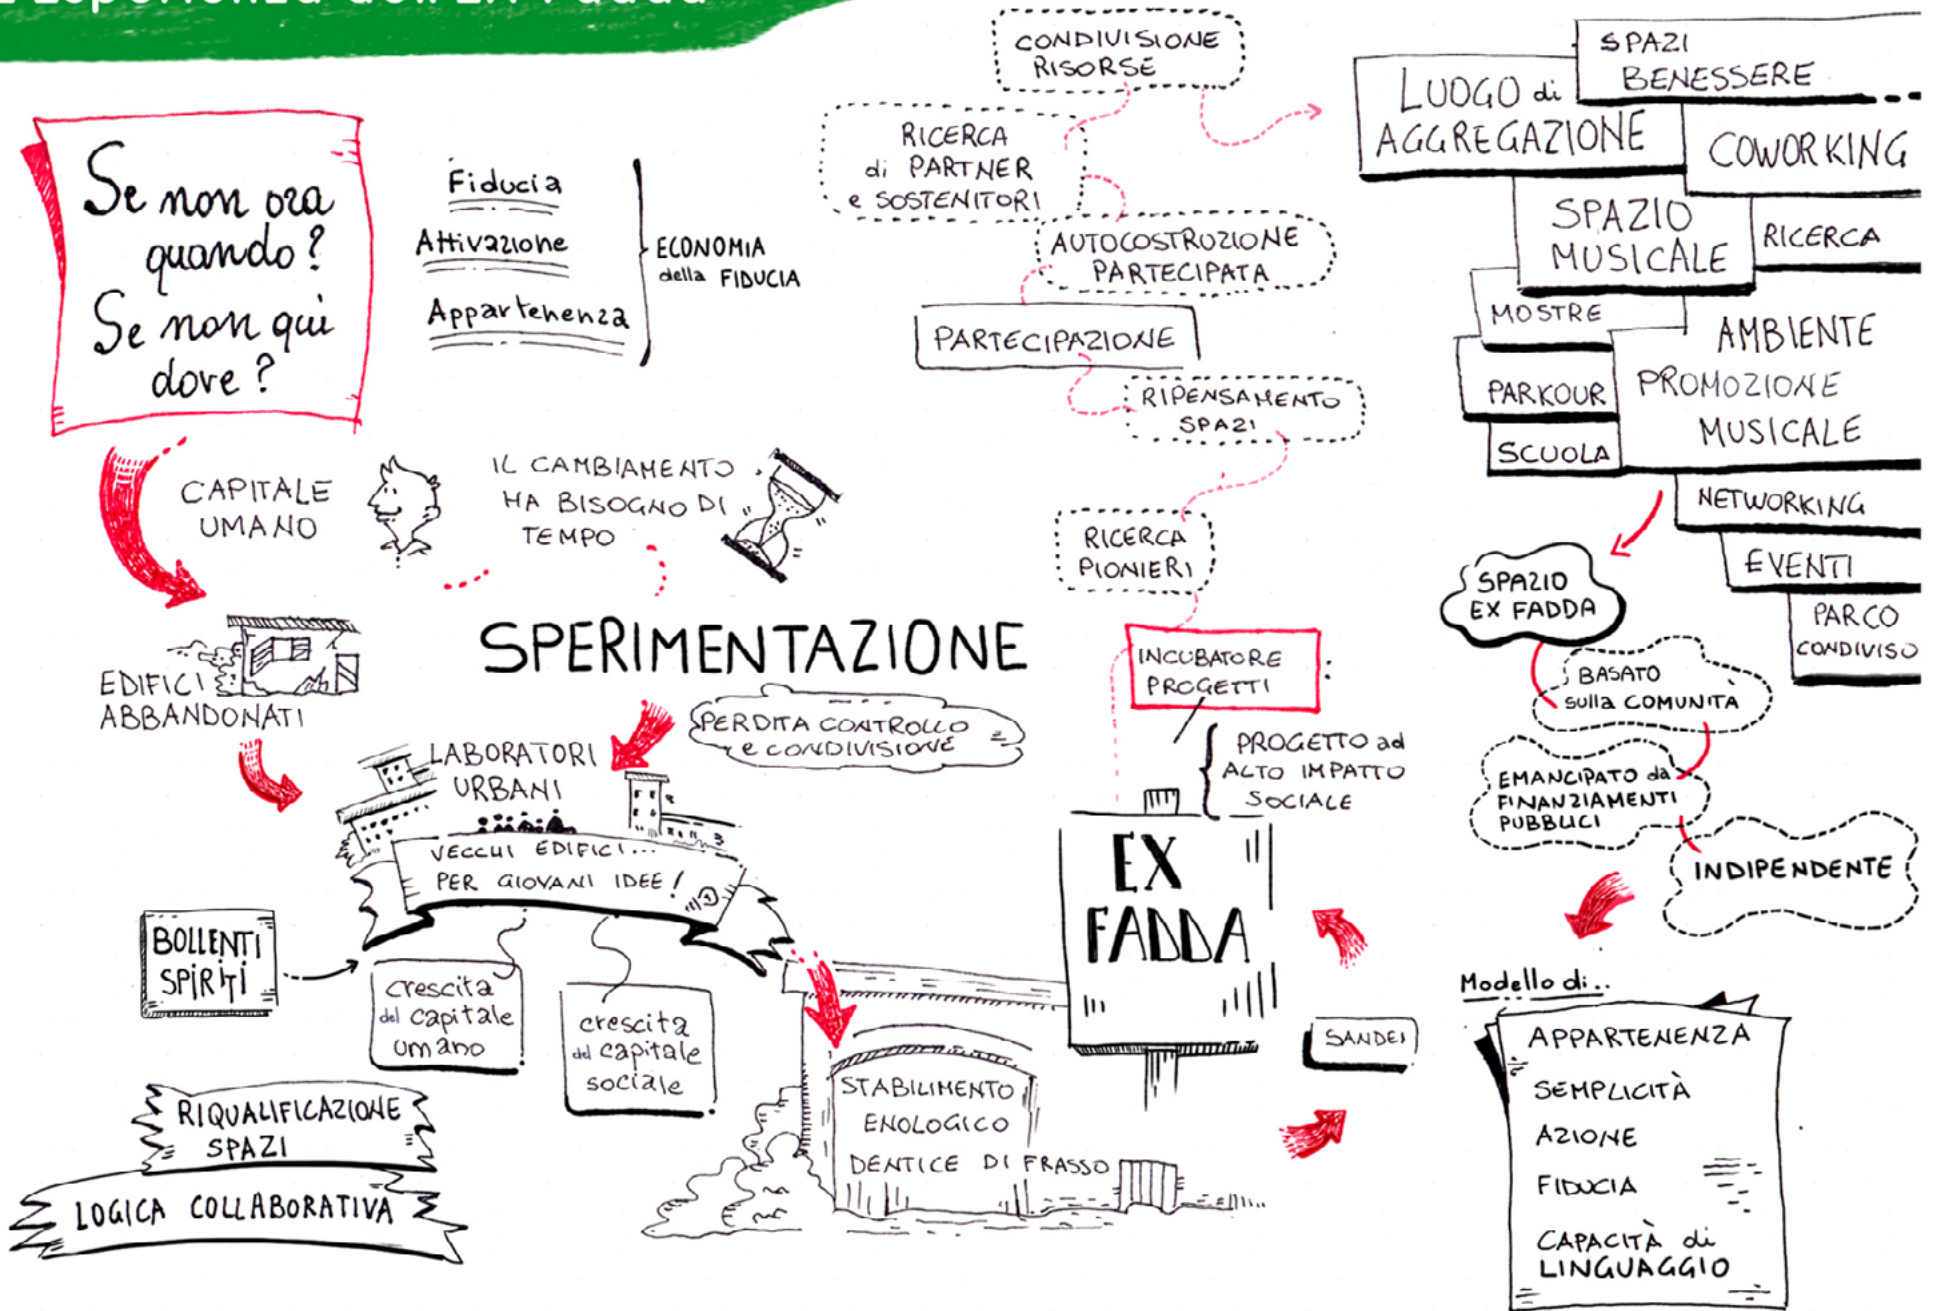 Se non ora
quando?
Se non qui
dove?
Fiducia
Attivazione
Appartenenza
ECONOMIA
della FIDUCIA
CAPITALE
UMANO
IL CAMBIAMENTO
HA BISOGNO DI
TEMPO
EDIFICI
ABBANDONATI
SPERIMENTAZIONE
PERDITA CONTROLLO
e CONDIVISIONE
LABORATORI
URBANI
VECCHI EDIFICI...
PER GIOVANI IDEE!
BOLLENTI
SPIRITI
crescita
del capitale
umano
crescita
del capitale
sociale
RIQUALIFICAZIONE
SPAZI
LOGICA COLLABORATIVA
STABILIMENTO
ENOLOGICO
DENTICE DI FRASSO
SANDEI
EX
FADDA
INCUBATORE
PROGETTI
:
PROGETTO ad
ALTO IMPATTO
SOCIALE
RICERCA
PIONIERI
RIPENSAMENTO
SPAZI
PARTECIPAZIONE
AUTOCOSTRUZIONE
PARTECIPATA
RICERCA
di PARTNER
e SOSTENITORI
CONDIVISIONE
RISORSE
LUOGO di
AGGREGAZIONE
SPAZI
BENESSERE
COWORKING
SPAZIO
MUSICALE
RICERCA
MOSTRE
AMBIENTE
PARKOUR
PROMOZIONE
MUSICALE
SCUOLA
NETWORKING
EVENTI
PARCO
CONDIVISO
SPAZIO
EX FADDA
BASATO
sulla COMUNITÀ
EMANCIPATO da
FINANZIAMENTI
PUBBLICI
INDIPENDENTE
Modello di..
APPARTENENZA
SEMPLICITÀ
AZIONE
FIDUCIA
CAPACITÀ di
LINGUAGGIO